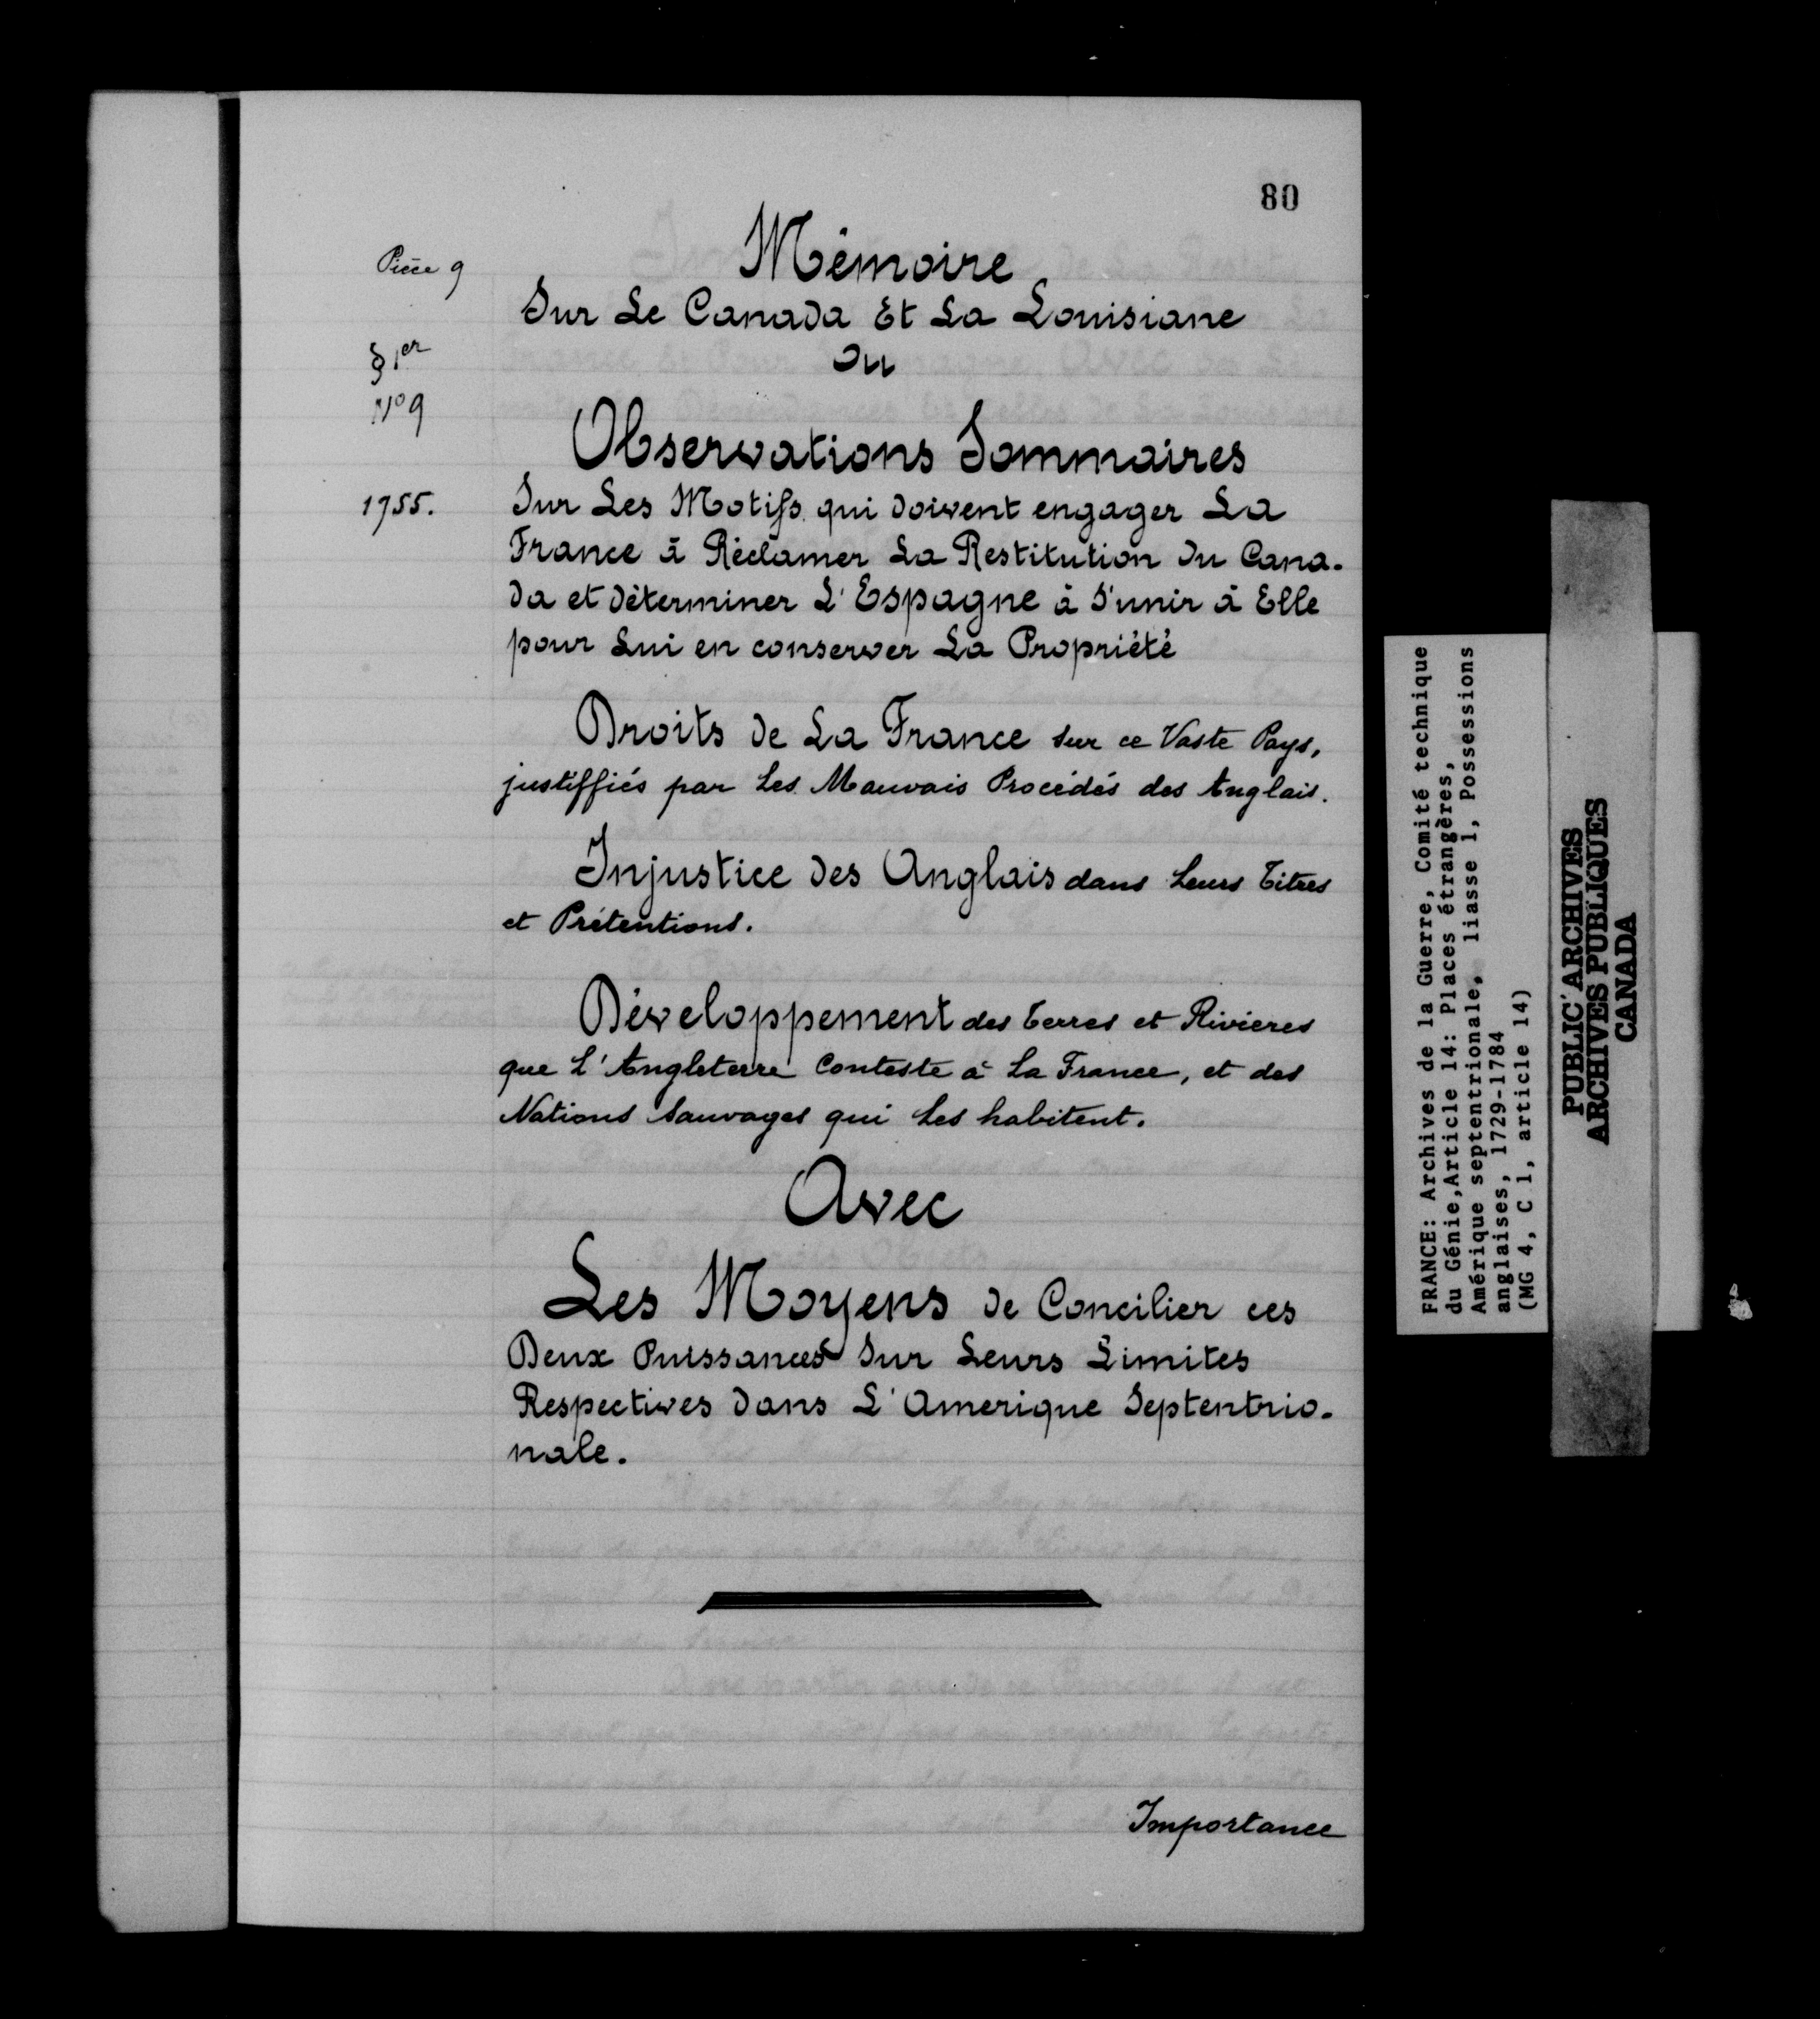 80
Pièce 9
Mémoire
Sur Le Canada Et La Louisiane
§ 1er
Ou
No 9
Observations Sommaires
1755.
Sur Les Motifs qui doivent engager La
France à Réclamer La Restitution du Cana-
da et déterminer L'Espagne à S'unir à Elle
pour Lui en conserver La Propriété
Droits de La France sur ce Vaste Pays,
justiffiés par Les Mauvais Procédés des Anglais.
Injustice des Anglais dans Leurs Titres
et Prétentions.
Développement des Terres et Rivieres
que L'Angleterre Conteste à La France, et des
Nations Sauvages qui Les habitent.
Avec
Les Moyens de Concilier ces
Deux Puissances Sur Leurs Limites
Respectives dans L'Amerique Septentrio-
nale.
Importance
FRANCE: Archives de la Guerre, Comité technique
du Génie,Article 14: Places étrangères,
Amérique septentrionale, liasse 1, Possessions
anglaises, 1729-1784
(MG 4, C 1, article 14)
PUBLIC ARCHIVES
ARCHIVES PUBLIQUES
CANADA